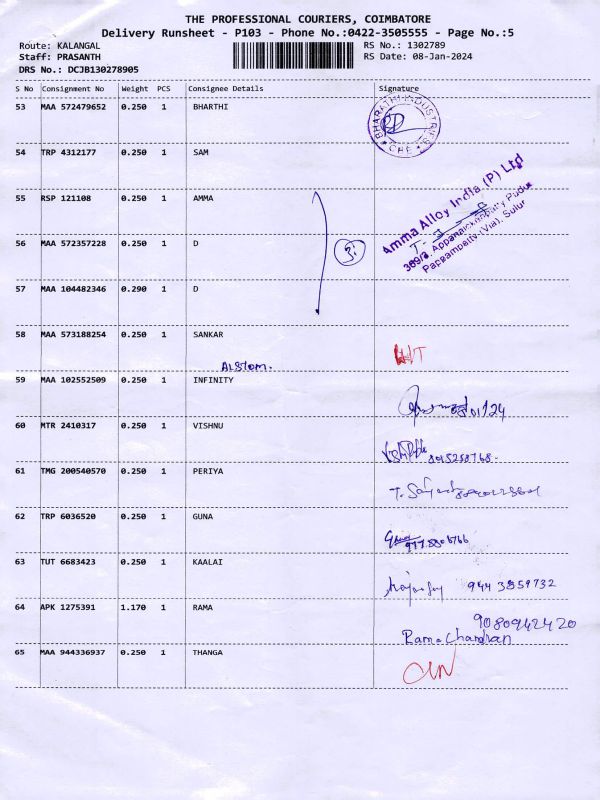 THE PROFESSIONAL COURIERS, COIMBATORE
Delivery Runsheet - P103 - Phone No.:0422-3505555 - Page No.:5
Route: KALANGAL RS No.: 1302789
Staff: PRASANTH RS Date: 08-Jan-2024
DRS No.: DCJB130278905
S No Consignment No Weight PCS Consignee Details Signature
53 MAA 572479652 0.250 1 BHARTHI
BHARATHI INDUSTRIES
CHE
54 TRP 4312177 0.250 1 SAM
55 RSP 121108 0.250 1 AMMA
Amma Alloy India (P) Ltd
389/3, Appanaickenpatty Pudur
Pappampatty (Via), Sulur
56 MAA 572357228 0.250 1 D
3
57 MAA 104482346 0.290 1 D
58 MAA 573188254 0.250 1 SANKAR
Alstom.
59 MAA 102552509 0.250 1 INFINITY
60 MTR 2410317 0.250 1 VISHNU
61 TMG 200540570 0.250 1 PERIYA
62 TRP 6036520 0.250 1 GUNA
63 TUT 6683423 0.250 1 KAALAI
944 3859732
64 APK 1275391 1.170 1 RAMA
9080942420
Rama Chandran
65 MAA 944336937 0.250 1 THANGA